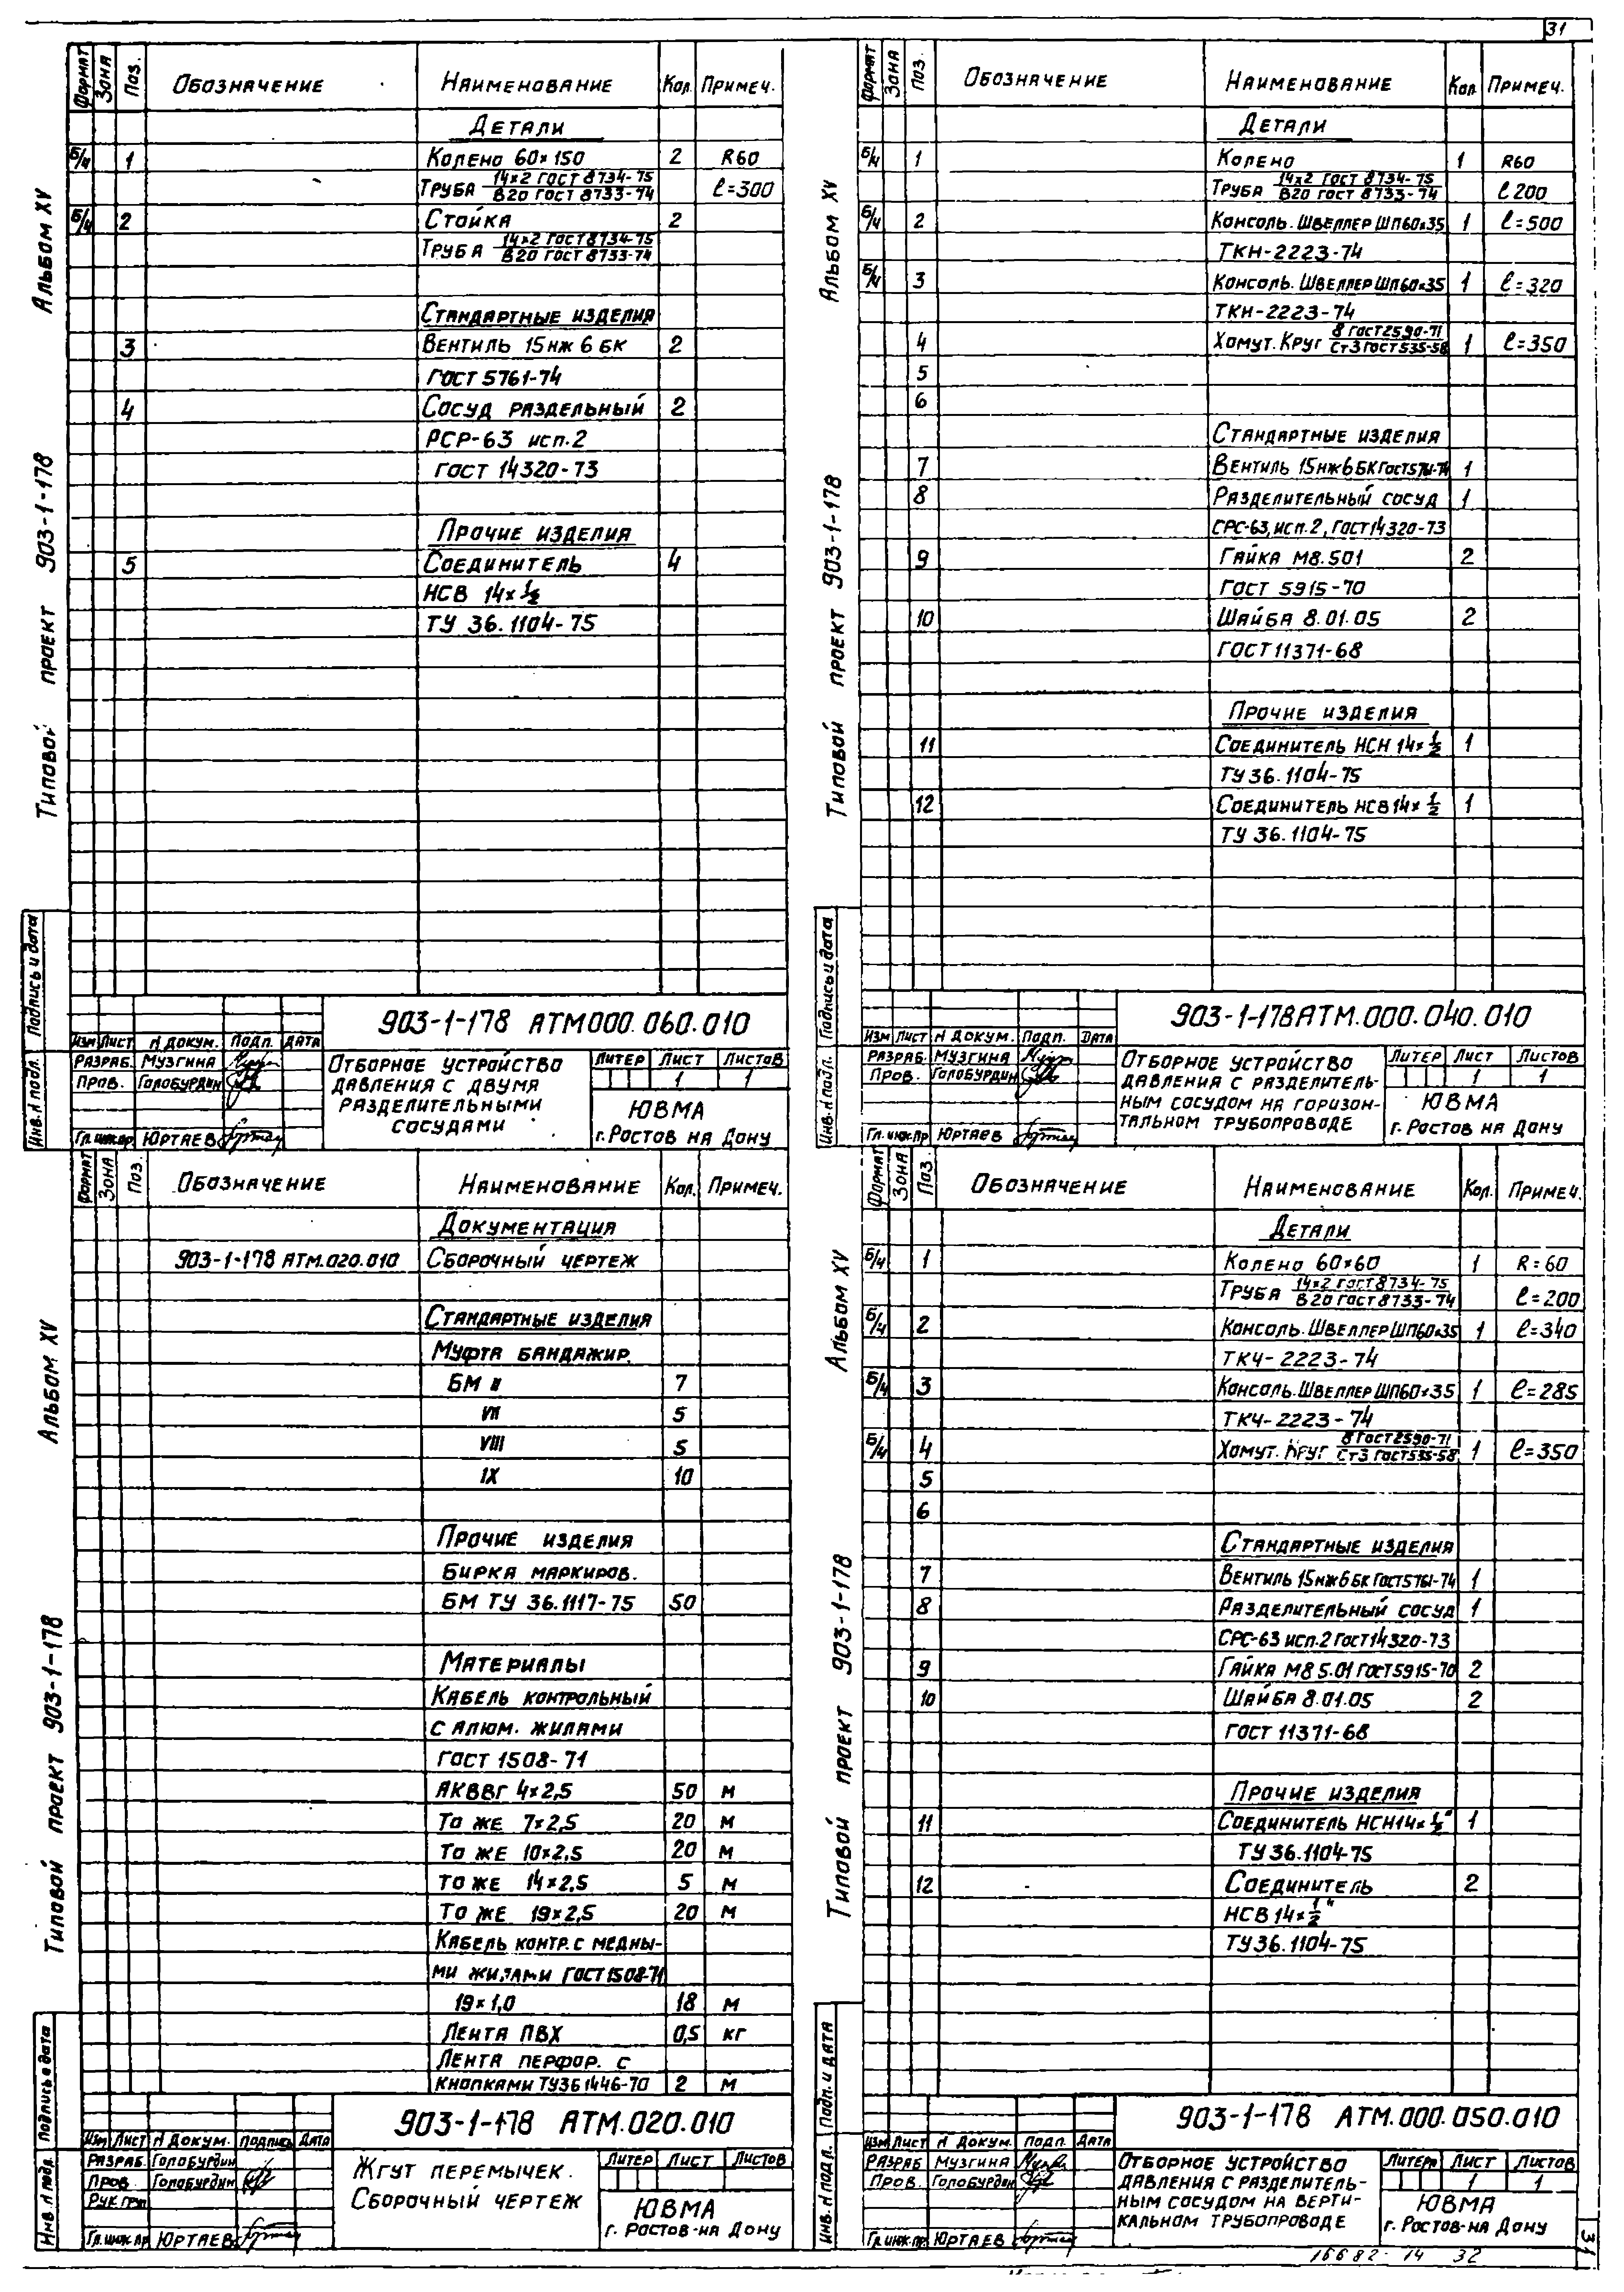 31
Формат Зона Поз. Обозначение Наименование Кол. Примеч.
Детали
Б/ч 1 Колено 60×150 2 R60
Труба 14×2 ГОСТ 8734-75 / В20 ГОСТ 8733-74 ℓ=300
Б/ч 2 Стойка 2
Труба 14×2 ГОСТ 8734-75 / В20 ГОСТ 8733-74
Стандартные изделия
3 Вентиль 15нж 6 бк 2
ГОСТ 5761-74
4 Сосуд раздельный 2
РСР-63 исп.2
ГОСТ 14320-73
Прочие изделия
5 Соединитель 4
НСВ 14×½
ТУ 36.1104-75
Альбом XV
Типовой проект 903-1-178
Подпись и дата
Инв. № подл.
903-1-178 АТМ000.060.010
Изм Лист № докум. Подп. Дата
Разраб. Музгина
Пров. Голобурдин
Гл. инж. пр Юртаев
Отборное устройство
давления с двумя
разделительными
сосудами
Литер Лист Листов
1 1
ЮВМА
г. Ростов на Дону
Формат Зона Поз Обозначение Наименование Кол. Примеч.
Детали
Б/ч 1 Колено 1 R60
Труба 14×2 ГОСТ 8734-75 / В20 ГОСТ 8733-74 ℓ200
Б/ч 2 Консоль. Швеллер ШП60×35 1 ℓ=500
ТКН-2223-74
Б/ч 3 Консоль. Швеллер ШП60×35 1 ℓ=320
ТКН-2223-74
4 Хомут. Круг 8 ГОСТ 2590-71 / Ст3 ГОСТ 535-58 1 ℓ=350
5
6
Стандартные изделия
7 Вентиль 15нж6бк ГОСТ 5761-74 1
8 Разделительный сосуд 1
СРС-63, исп.2, ГОСТ 14320-73
9 Гайка М8.501 2
ГОСТ 5915-70
10 Шайба 8.01.05 2
ГОСТ 11371-68
Прочие изделия
11 Соединитель НСН 14×½ 1
ТУ 36.1104-75
12 Соединитель НСВ 14×½ 1
ТУ 36.1104-75
Альбом XV
Типовой проект 903-1-178
Подпись и дата
Инв. № подл.
903-1-178 АТМ.000.040.010
Изм Лист № докум. Подп. Дата
Разраб. Музгина
Пров. Голобурдин
Гл. инж. пр Юртаев
Отборное устройство
давления с разделитель-
ным сосудом на горизон-
тальном трубопроводе
Литер Лист Листов
1 1
ЮВМА
г. Ростов на Дону
Формат Зона Поз. Обозначение Наименование Кол. Примеч.
Документация
903-1-178 АТМ.020.010 Сборочный чертеж
Стандартные изделия
Муфта бандажир.
БМ II 7
VII 5
VIII 5
IX 10
Прочие изделия
Бирка маркиров.
БМ ТУ 36.1117-75 50
Материалы
Кабель контрольный
с алюм. жилами
ГОСТ 1508-71
АКВВГ 4×2,5 50 м
То же 7×2,5 20 м
То же 10×2,5 20 м
То же 14×2,5 5 м
То же 19×2,5 20 м
Кабель контр. с медны-
ми жилами ГОСТ 1508-71
19×1,0 18 м
Лента ПВХ 0,5 кг
Лента перфор. с
кнопками ТУ36 1446-70 2 м
Альбом XV
Типовой проект 903-1-178
Подпись и дата
Инв. № подл.
903-1-178 АТМ.020.010
Изм Лист № докум. Подпись Дата
Разраб. Голобурдин
Пров. Голобурдин
Рук. груп
Гл. инж. пр Юртаев
Жгут перемычек.
Сборочный чертеж
Литер Лист Листов
ЮВМА
г. Ростов-на Дону
Формат Зона Поз Обозначение Наименование Кол. Примеч.
Детали
Б/ч 1 Колено 60×60 1 R=60
Труба 14×2 ГОСТ 8734-75 / В20 ГОСТ 8733-74 ℓ=200
Б/ч 2 Консоль. Швеллер ШП60×35 1 ℓ=340
ТКЧ-2223-74
Б/ч 3 Консоль. Швеллер ШП60×35 1 ℓ=285
ТКЧ-2223-74
Б/ч 4 Хомут. Круг 8 ГОСТ 2590-71 / Ст3 ГОСТ 535-58 1 ℓ=350
5
6
Стандартные изделия
7 Вентиль 15нж6бк ГОСТ 5761-74 1
8 Разделительный сосуд 1
СРС-63 исп.2 ГОСТ 14320-73
9 Гайка М8 5.01 ГОСТ 5915-70 2
10 Шайба 8.01.05 2
ГОСТ 11371-68
Прочие изделия
11 Соединитель НСН14×½" 1
ТУ 36.1104-75
12 Соединитель 2
НСВ 14×½"
ТУ 36.1104-75
Альбом XV
Типовой проект 903-1-178
Подп. и дата
Инв. № подл.
903-1-178 АТМ.000.050.010
Изм Лист № докум. Подп. Дата
Разраб Музгина
Пров. Голобурдин
Гл. инж. пр. Юртаев
Отборное устройство
давления с разделитель-
ным сосудом на верти-
кальном трубопроводе
Литера Лист Листов
1 1
ЮВМА
г. Ростов-на Дону
31
16682-14 32